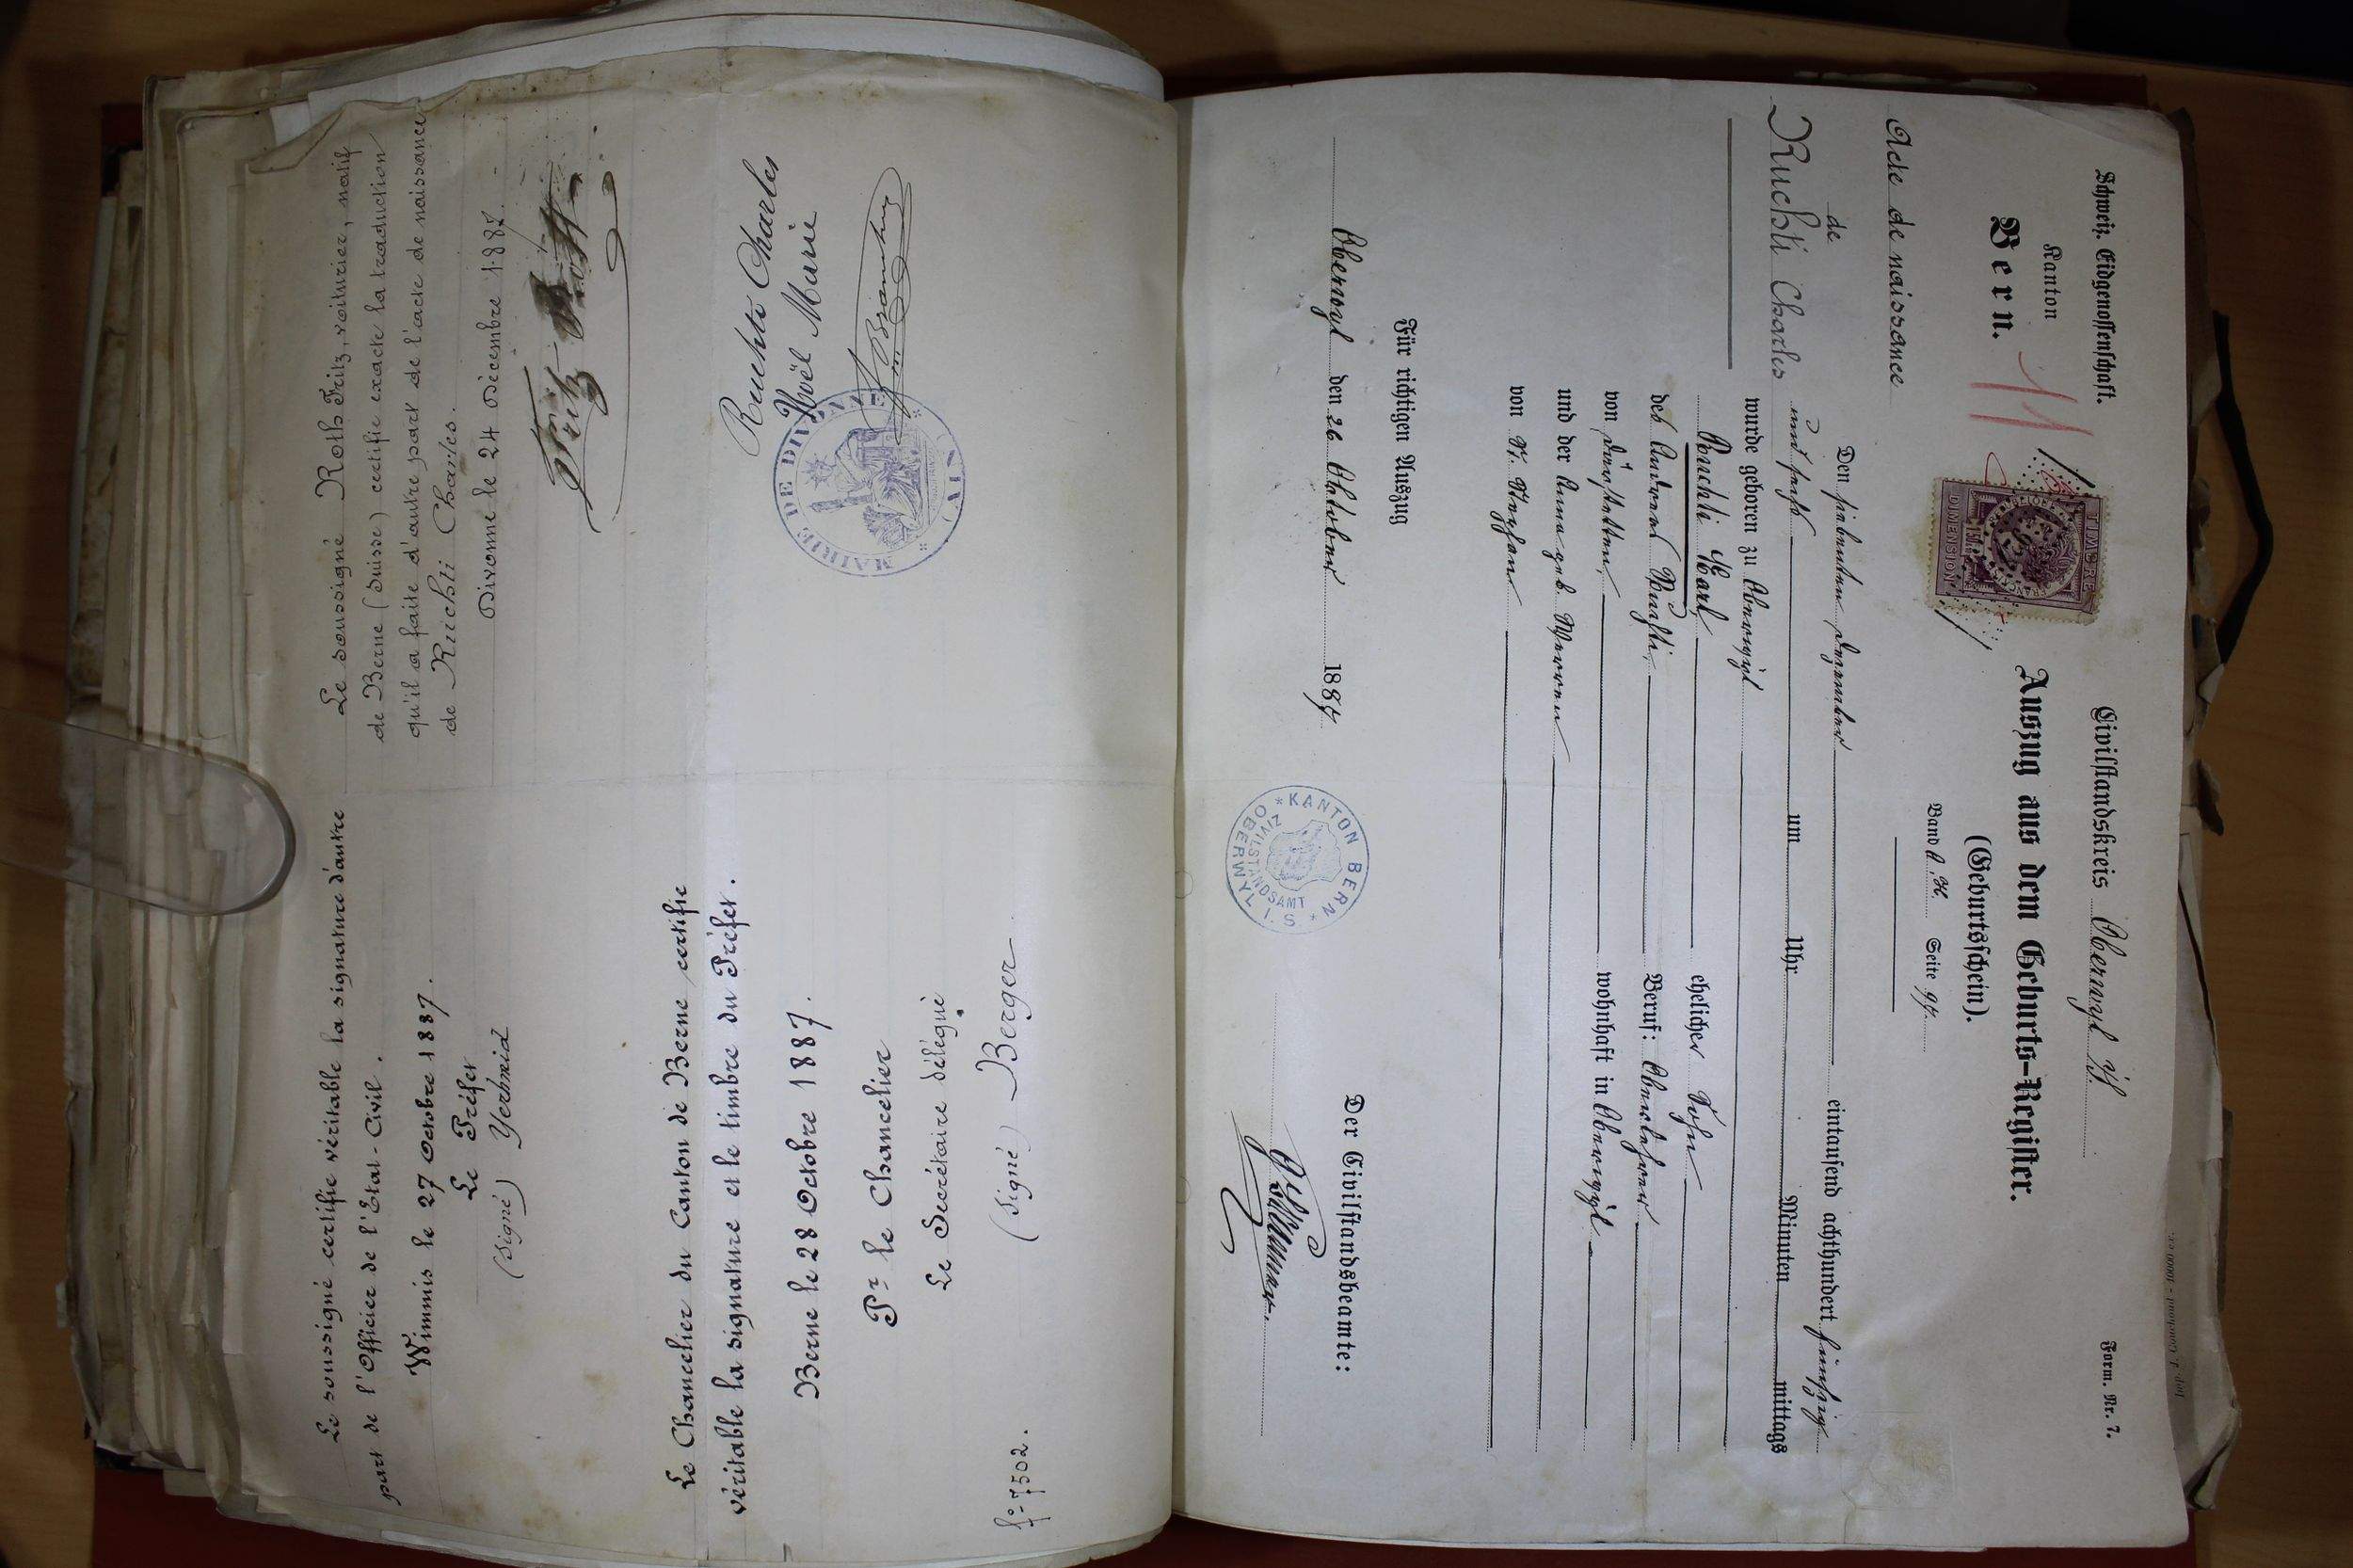 Le soussigné Roth Fritz, voiturier, natif
de Berne (Suisse) certifie exacte la traduction
qu'il a faite d'autre part de l'acte de naissance
de Ruchti Charles.
Divonne le 24 Décembre 1887.
Fritz Roth
Ruchti Charles
Noël Marie
MAIRIE DE DIVONNE (AIN)
Le soussigné certifie véritable la signature d'autre
part de l'Officier de l'Etat-Civil.
Wimmis le 27 Octobre 1887.
Le Préfet
(signé)
Le Chancelier du Canton de Berne certifie
véritable la signature et le timbre du Préfet.
Berne le 28 Octobre 1887.
Pr le Chancelier
Le Secrétaire délégué
(signé) Berger
fo-7502.
Schweiz. Eidgenossenschaft.
Kanton
Bern.
11
TIMBRE
DIMENSION
Civilstandskreis Oberwyl i/S.
Form. Nr. 7.
Auszug aus dem Geburts-Register.
(Geburtsschein).
Band Seite
Acte de naissance
de
Ruchti Charles
Den siebenten Dezember eintausend achthundert fünfzig
und sechs um Uhr Minuten mittags
wurde geboren zu Oberwyl
Ruchti Karl ehelicher Sohn
des Andreas Ruchti, Beruf: Oberlehrer
von Därstetten, wohnhaft in Oberwyl
und der Anna geb. Werren
von
Für richtigen Auszug
Oberwyl den 26 Oktober 1887
Der Civilstandsbeamte:
KANTON BERN
CIVILSTANDSAMT
OBERWYL I. S.